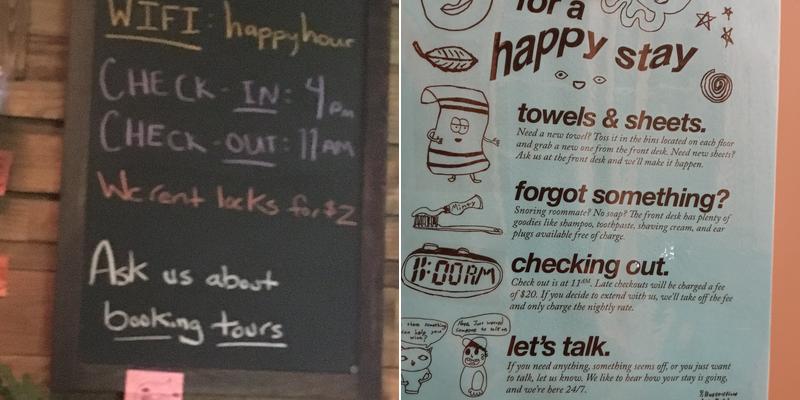 WIFI: happyhour
CHECK-IN: 4pm
CHECK-OUT: 11AM
We rent locks for $2
Ask us about
booking tours
for a
happy stay
towels & sheets.
Need a new towel? Toss it in the bins located on each floor
and grab a new one from the front desk. Need new sheets?
Ask us at the front desk and we'll make it happen.
forgot something?
Minty
Snoring roommate? No soap? The front desk has plenty of
goodies like shampoo, toothpaste, shaving cream, and ear
plugs available free of charge.
11:00AM
checking out.
Check out is at 11AM. Late checkouts will be charged a fee
of $20. If you decide to extend with us, we'll take off the fee
and only charge the nightly rate.
let's talk.
If you need anything, something seems off, or you just want
to talk, let us know. We like to hear how your stay is going,
and we're here 24/7.